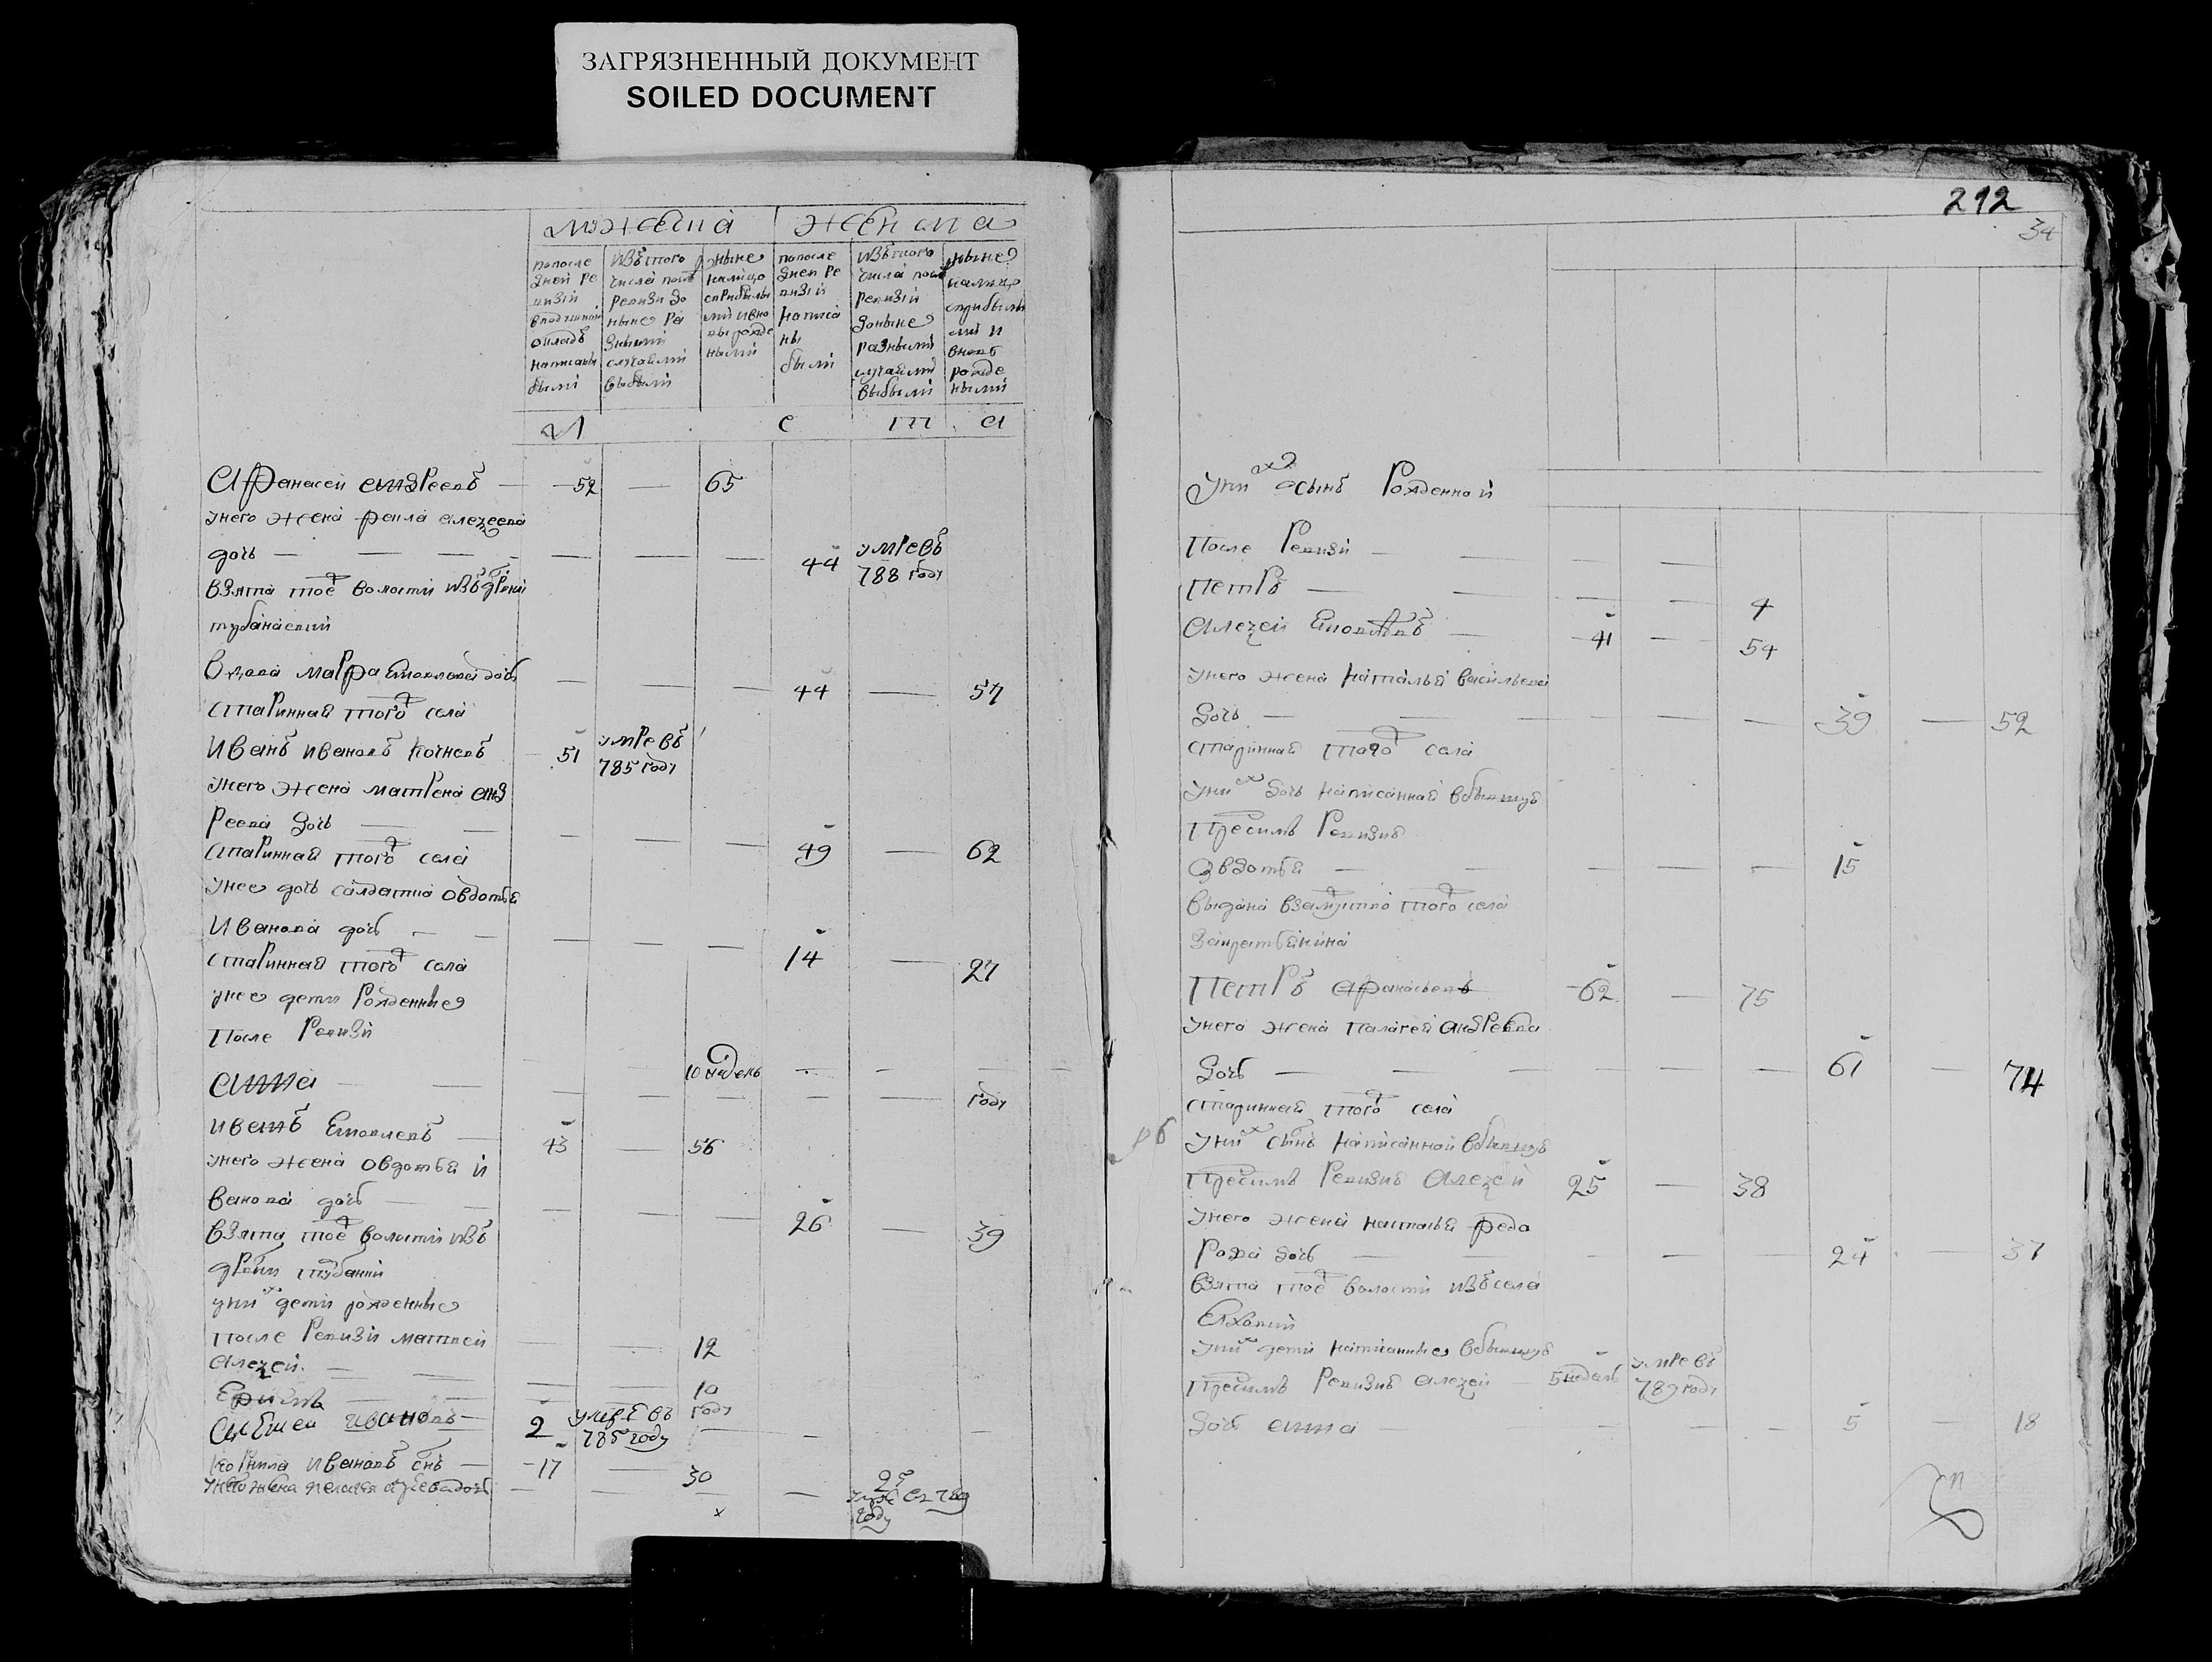 ЗАГРЯЗНЕННЫЙ ДОКУМЕНТ
SOILED DOCUMENT
мужеска женска
попосле дней ревизии в подушной оклад написаны были
изъ того числа после ревизи до ныне разными случаями выбыли
ныне налицо с прибылыми и вно рожденными
попосле дней ревизии написаны были
изъ того числа после ревизии доныне разными случаями выбыли
ныне налицо с прибылыми и вновь рожденными
л е т а
Афанасей андреевъ — 52 — 65
унего жена алезеева
дочь — — — — — — 44 умре въ 788 году
взята тое волости изъ дрвни
тубанаевки
вдова марфа яковлева дочь — — — 44 — 57
старинная того села
Иванъ ивановъ 51 умре въ 785 году
унего жена матрена анд
реева дочь — — — — — 49 — 62
старинная того села
унее дочь салдатка овдотья
Иванова дочь — — — — — 14 — 27
старинная того села
унее дети рожденные
после ревизи
анна — — — — 10 недель — — — году
иванъ яковлевъ — 43 — 56
унего жена овдотья и
ванова дочь — — — — — 26 — 39
взята тое волости изъ
дрвни
уних дети рожденные
после ревизи матвей — — 12
алезей — — — — 10
Ефимъ — — — — году
Алексей ивановъ — 2 умре въ 785 году — — — —
ивановъ снъ — 17 — 30
унево жена пелагея дочь — — — 25 умре въ 789 году
292
34
Уних сынъ Рожденной
После Ревизи — — — —
Петръ — — — — 4
Алезей яковлевъ — 41 — 54
унего жена наталья васильева
дочь — — — — — — 39 — 52
старинная того села
уних дочь написанная в бывшую
пред симъ ревизию
овдотья — — — — — 15
выдана взамужство того села
закрестьянина
Петръ афанасьевъ 62 — 75
унего жена палагея андревна
дочь — — — — — — 61 — 74
старинная того села
уних сынъ написанной в бывшую
пред симъ ревизию алезей 25 — 38
унего жена насталья федо
рова дочь — — — — — 24 37
взята тое волости изъ села
Елховки
уних дети написанные в бывшую
пред симъ ревизию алезей — 5 недель умре въ 789 году
дочь анна — — — — 5 — 18